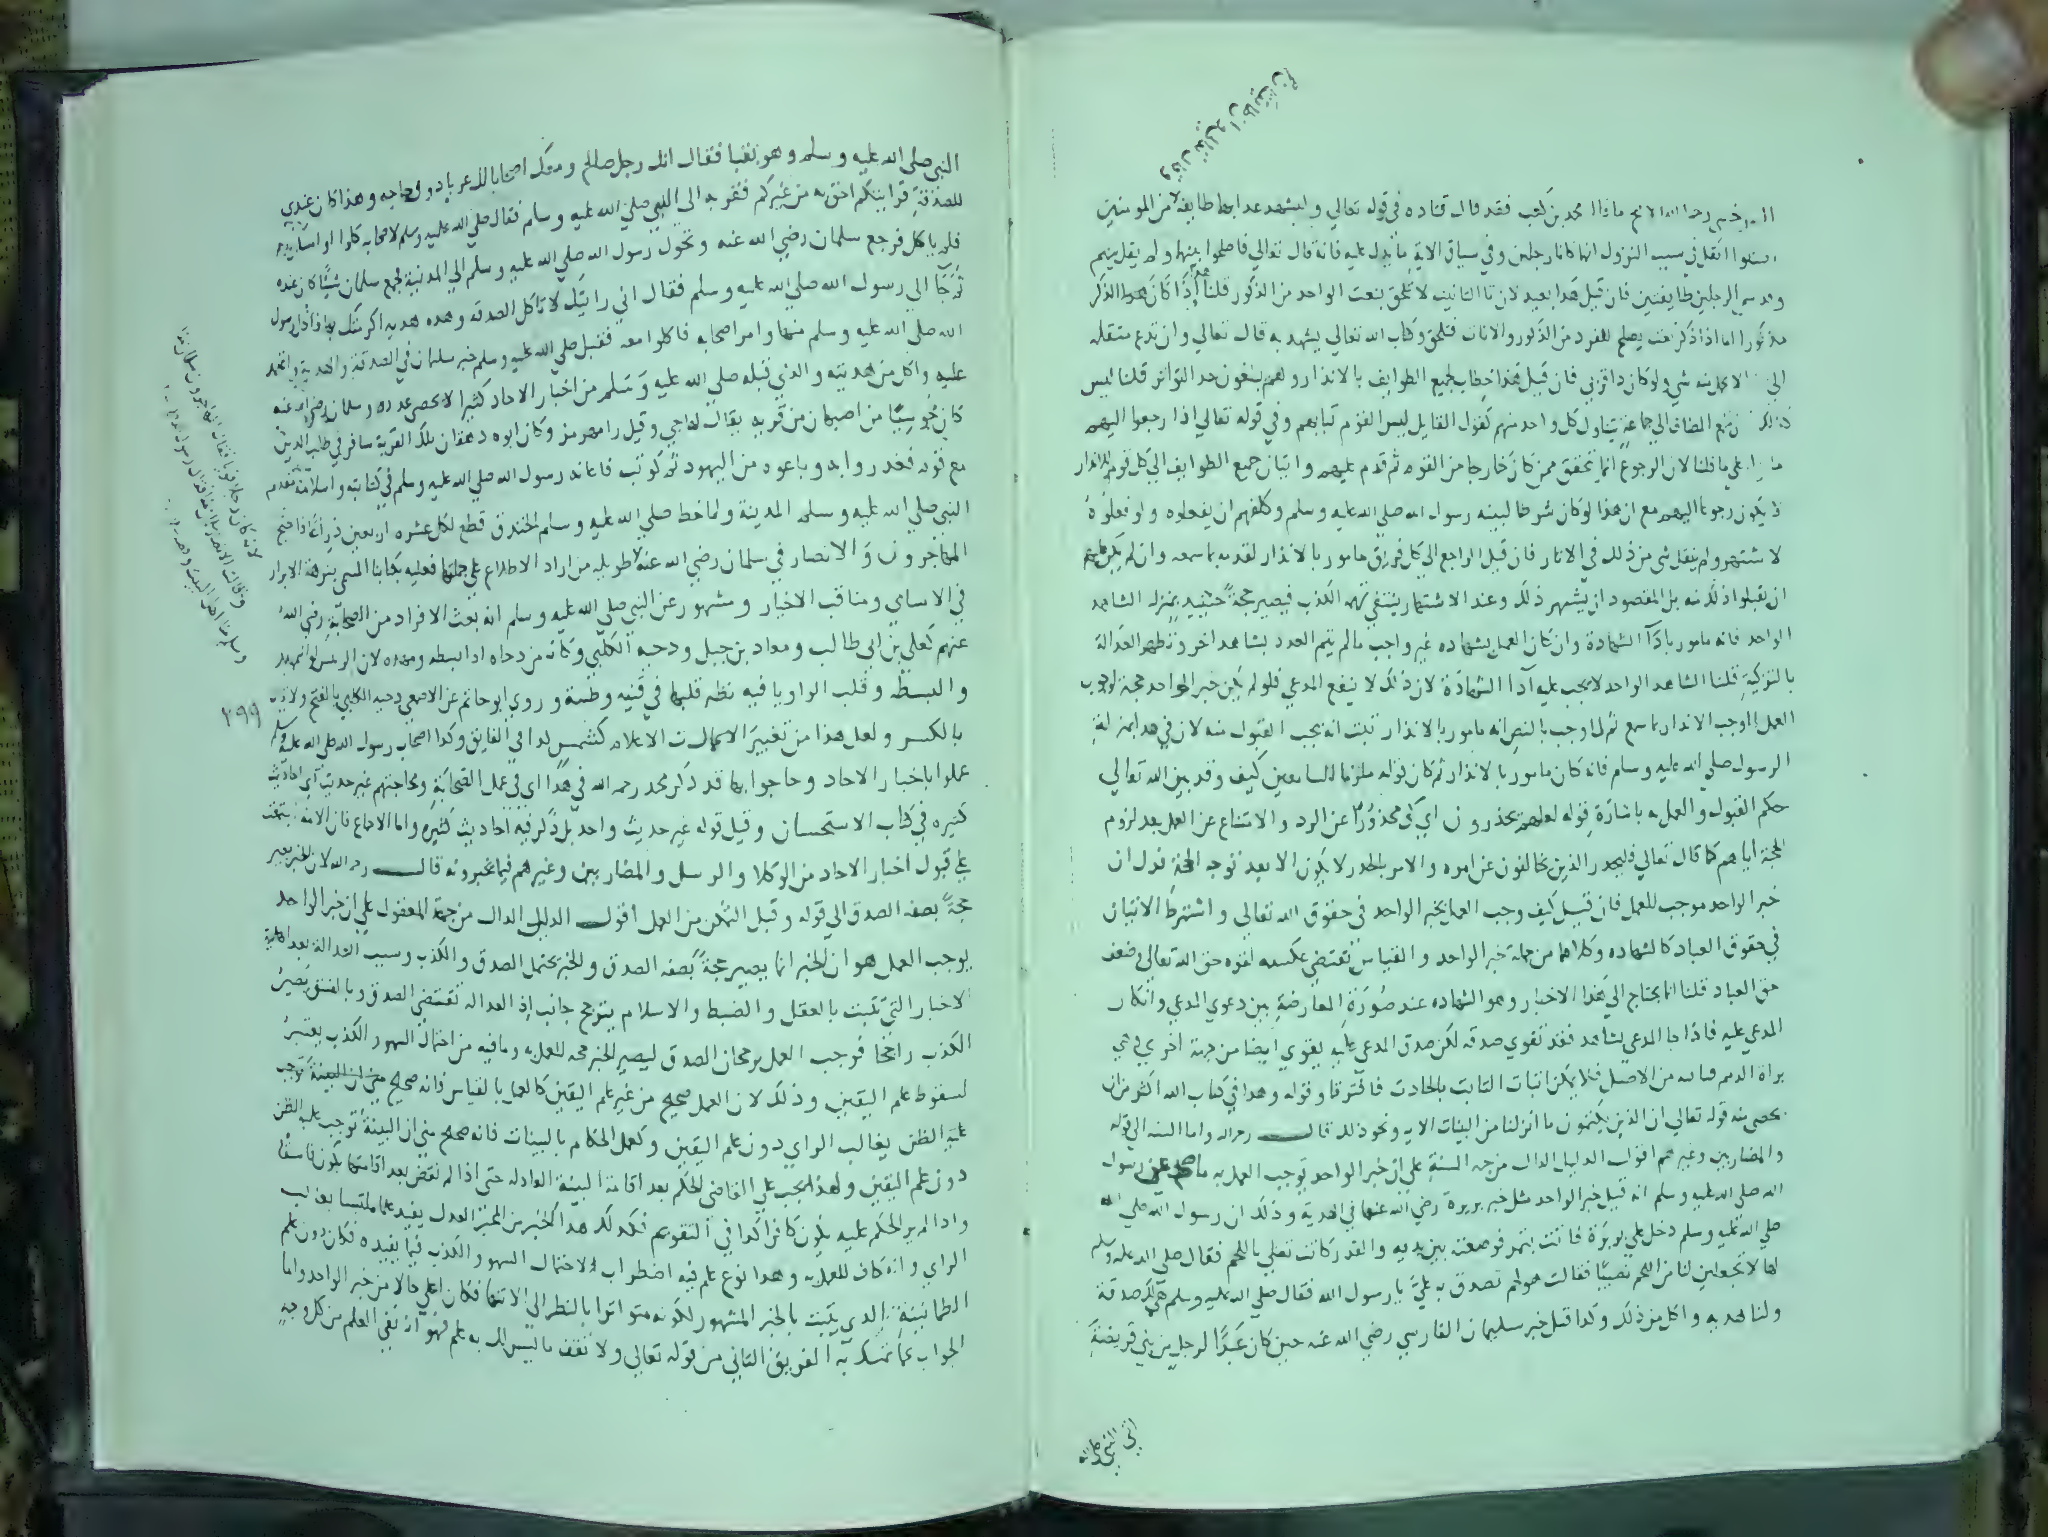 وان طائفتان
السرخسي رحمه الله الاصح ما قال محمد بن كعب فقد قال قتاده في قوله تعالي وليشهد عذابهما طايفة من المومنين
اقتتلوا نقل في سبب النزول انهما كانا رجلين وفي سياق الاية ما يدل عليه فانه قال تعالي فاصلحوا بينهما ولم يقل بينهم
وقد سمي الرجلين طايفتين فان قيل هذا بعيد لان تا التانيث لا تلحق بنعت الواحد من الذكور قلنا هذا اذا كان هذا الذكر
مذكورا اما اذا ذكر نعت يصلح للفرد من الذكور والاناث فتلحق وكتاب الله تعالي يشهد به قال تعالي وان تدع مثقلة
الي لا يحمل منه شي ولو كان ذا قربي فان قيل هذا خطاب لجميع الطوايف بالانذار وهم يبلغون حد التواتر قلنا ليس
كذلك الجمع المضاف الي جماعة يتناول كل واحد منهم كقول القايل لبس القوم ثيابهم وفي قوله تعالي اذا رجعوا اليهم
علي ما قلنا لان الرجوع انما يتحقق ممن كان خارجا من القوم ثم قدم عليهم واتيان جميع الطوايف الي كل قوم للانذار
لا يكون رجوعا اليهم مع ان هذا لو كان شرطا لبينه رسول الله صلي الله عليه وسلم وكلفهم ان يفعلوه ولو فعلوه
لاشتهر ولم ينقل شي من ذلك في الاثار فان قيل الراجع الي كل فريق مامور بالانذار لقومه بما سمعه وان لم يكن عليهم
ان يقبلوا ذلك منه بل المقصود ان يشتهر ذلك وعند الاشتهار ينتفي تهمة الكذب فيصير حجة حينئذ بمنزلة الشاهد
الواحد فانه مامور باداء الشهادة وان كان العمل بشهاده غير واجب مالم يتم العدد بشاهد اخر وتظهر العدالة
بالتزكية قلنا الشاهد الواحد لا يجب عليه اداء الشهادة لان ذلك لا ينفع المدعي فلو لم يكن خبر الواحد حجة لوجوب
العمل لما وجب الانذار بما سمع ثم لما وجب بالنص انه مامور بالانذار ثبت انه يجب القبول منه لان في هذا بمنزلة
الرسول صلي الله عليه وسلم فانه كان مامورا بالانذار ثم كان قوله ملزما للسامعين كيف وقد بين الله تعالي
حكم القبول والعمل به باشارة قوله لعلهم يحذرون اي لكي يحذروا عن الرد والامتناع عن العمل بعد لزوم
الحجة اياهم كما قال تعالي فليحذر الذين يخالفون عن امره والامر بالحذر لا يكون الا بعد توجه الحجة فدل ان
خبر الواحد موجب للعمل فان قيل كيف وجب العمل بخبر الواحد في حقوق الله تعالي واشترط الاتيان
في حقوق العباد كالشهاده وكلاهما من جملة خبر الواحد والقياس يقتضي عكسه لقوه حق الله تعالي وضعف
حق العباد قلنا انما يحتاج الي هذا الاخبار وهو الشهاده عند صورة المعارضة بين دعوي المدعي وانكار
المدعي عليه فاذا جا المدعي بشاهد فقد تقوي صدقه لكن صدق المدعي عليه يقوي ايضا من جهة اخري وهي
براة الذمم من الاصل فلا يمكن اثبات الثابت بالحادث فافترقا وقوله وهذا في كتاب الله اكثر من ان
يحصي منه قوله تعالي ان الذين يكتمون ما انزلنا من البينات الاية ونحو ذلك قال رحمه الله واما السنة الي قوله
والمضاربين وغيرهم اقول الدليل الدال من جهة السنة علي ان خبر الواحد يوجب العمل به ما صح عن رسول
الله صلي الله عليه وسلم انه قبل خبر الواحد مثل خبر بريرة رضي الله عنها في الهدية وذلك ان رسول الله صلي الله
صلي الله عليه وسلم دخل علي بريرة فاتت بتمر فوضعته بين يديه والقدر كانت تغلي باللحم فقال صلي الله عليه وسلم
لها لا تجعلين لنا من اللحم نصيبا فقالت هو لحم تصدق به علي يا رسول الله فقال صلي الله عليه وسلم هي لك صدقة
ولنا هدية واكل من ذلك وكذا قبل خبر سليمان الفارسي رضي الله عنه حين كان عبدا لرجل من بني قريضة
اتي النبي صلي الله
النبي صلي الله عليه وسلم وهو بقبا فقال انك رجل صالح ومعك اصحابا لك غربا ذوو حاجه وهذا كان عندي
للصدقة فرايتكم احق به من غيركم فقربه الي النبي صلي الله عليه وسلم فقال صلي الله عليه وسلم لاصحابه كلوا وامسك يده
فلم ياكل فرجع سلمان رضي الله عنه وتحول رسول الله صلي الله عليه وسلم الي المدينة فجمع سلمان شيئا كان عنده
ثم جا الي رسول الله صلي الله عليه وسلم فقال اني رايتك لا تاكل الصدقه وهذه هديه اكرمتك بها فاكل رسول
الله صلي الله عليه وسلم منها وامر اصحابه فاكلوا معه فقبل صلي الله عليه وسلم خبر سلمان في الصدقة والهدية واعتمد
عليه واكل من هديته والذي قبله صلي الله عليه وسلم من اخبار الاحاد كثيرا لا يحصي عدده وسلمان رضي الله عنه
كان مجوسيا من اصبهان من قرية يقال لها جي وقيل رامهرمز وكان ابوه دهقان تلك القرية سافر في طلب الدين
مع قوم فغدروا به وباعوه من اليهود ثم كوتب فاعانه رسول الله صلي الله عليه وسلم في كتابته واسلامه مقدم
النبي صلي الله عليه وسلم المدينة ولما خط صلي الله عليه وسلم الخندق قطع لكل عشره اربعين ذراعا فاحتج
المهاجرون والانصار في سلمان رضي الله عنه لا طويلة من اراد الاطلاع علي جملتها فعليه بكتابنا المسمي بنزهة الابرار
في الاسامي ومناقب الاخيار ومشهور عن النبي صلي الله عليه وسلم انه بعث الافراد من الصحابة رضي الله
عنهم كعلي بن ابي طالب ومعاذ بن جبل ودحية الكلبي وكانه من دحاه اذا بسطه ومهده لان الرييس له التمهيد
والبسطة وقلب الواو يا فيه نظير قلبها في قنيه وصبية وروي ابو حاتم عن الاصمعي دحية الكلبي بالفتح ولا يقال
بالكسر ولعل هذا من تغييرات الاعلام كشمس كذا في الفايق وكذا اصحاب رسول الله صلي الله عليه وسلم
عملوا باخبار الاحاد وحاجوا بها قد ذكر محمد رحمه الله في هذا اي في عمل الصحابة ومحاجتهم غير حديث اي احاديث
كثيره في كتاب الاستحسان وقيل قوله غير حديث واحد بل ذكر فيه احاديث كثيرة واما الاجماع فان الامة اجتمعت
علي قبول اخبار الاحاد من الوكلا والرسل والمضاربين وغيرهم فيما يخبرونه قال رحمه الله لان الخبر يصير
حجة بصفة الصدق الي قوله وقبل التمكن من العمل اقول الدليل الدال من جهة المعقول علي ان خبر الواحد
يوجب العمل هو ان الخبر انما يصير حجة بصفه الصدق والخبر يحتمل الصدق والكذب وسبب العدالة بعد اهلية
الاخبار التي تثبت بالعقل والضبط والاسلام يترجح جانب اذ العدالة تقتضي الصدق وبالفسق يصير
الكذب راجحا فوجب العمل برجحان الصدق ليصير الخبر حجة للعمل به وما فيه من احتمال السهو والكذب يعتبر
لسقوط علم اليقين وذلك لان العمل صحيح من غير علم اليقين كالعمل بالقياس فانه صحيح
غلبة الظن بغالب الراي دون علم اليقين وكعمل الحكام بالبينات فانه صحيح مبني ان البينة توجب غلبة الظن
دون علم اليقين ولهذا يجب علي القاضي الحكم بعد اقامة البينة العادله حتي اذا لم يقض بعد اقامتها يكون فاسقا
واذا لم ير الحكم عليه يكون كافرا كذا في التقويم فكذلك هذا الخبر من المخبر العدل يفيد علما ملتبسا بغالب
الراي وانه كاف للعمل به وهذا نوع علم فيه اضطراب لاحتمال السهو والكذب فيما يفيده فكان دون علم
الطمانينة الذي يثبت بالخبر المشهور لكونه متواترا بالنظر الي الانتها فكان اعلي حالا من خبر الواحد واما
الجواب عما تمسك به الفريق الثاني من قوله تعالي ولا تقف ما ليس لك به علم فهو ان نفي العلم من كل وجه
لانه كان رجلا قويا فقال المهاجرون سلمان منا
وقالت الانصار سلمان منا فقال رسول الله صلي الله
وسلم منا اهل البيت
٢٩٩